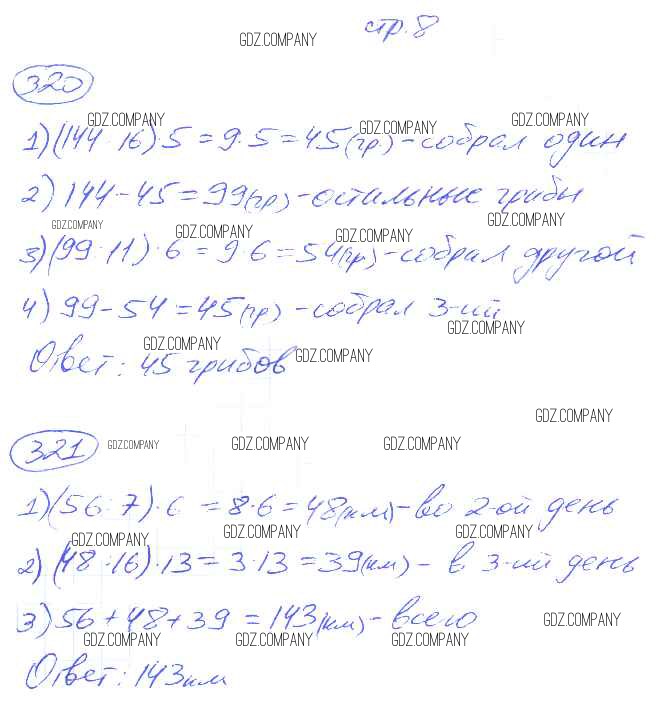 стр. 8
GDZ.COMPANY
320
GDZ.COMPANY GDZ.COMPANY GDZ.COMPANY
1) (144 : 16) · 5 = 9 · 5 = 45 (гр.) - собрал один
2) 144 - 45 = 99 (гр) - остальные грибы
GDZ.COMPANY GDZ.COMPANY GDZ.COMPANY GDZ.COMPANY
3) (99 : 11) · 6 = 9 · 6 = 54 (гр) - собрал другой
4) 99 - 54 = 45 (гр) - собрал 3-ий
GDZ.COMPANY GDZ.COMPANY GDZ.COMPANY
Ответ: 45 грибов
GDZ.COMPANY
321
GDZ.COMPANY GDZ.COMPANY GDZ.COMPANY
1) (56 : 7) · 6 = 8 · 6 = 48 (км) - во 2-ой день
GDZ.COMPANY GDZ.COMPANY GDZ.COMPANY
2) (48 : 16) · 13 = 3 · 13 = 39 (км) - в 3-ий день
3) 56 + 48 + 39 = 143 (км) - всего
GDZ.COMPANY GDZ.COMPANY GDZ.COMPANY GDZ.COMPANY
Ответ: 143 км